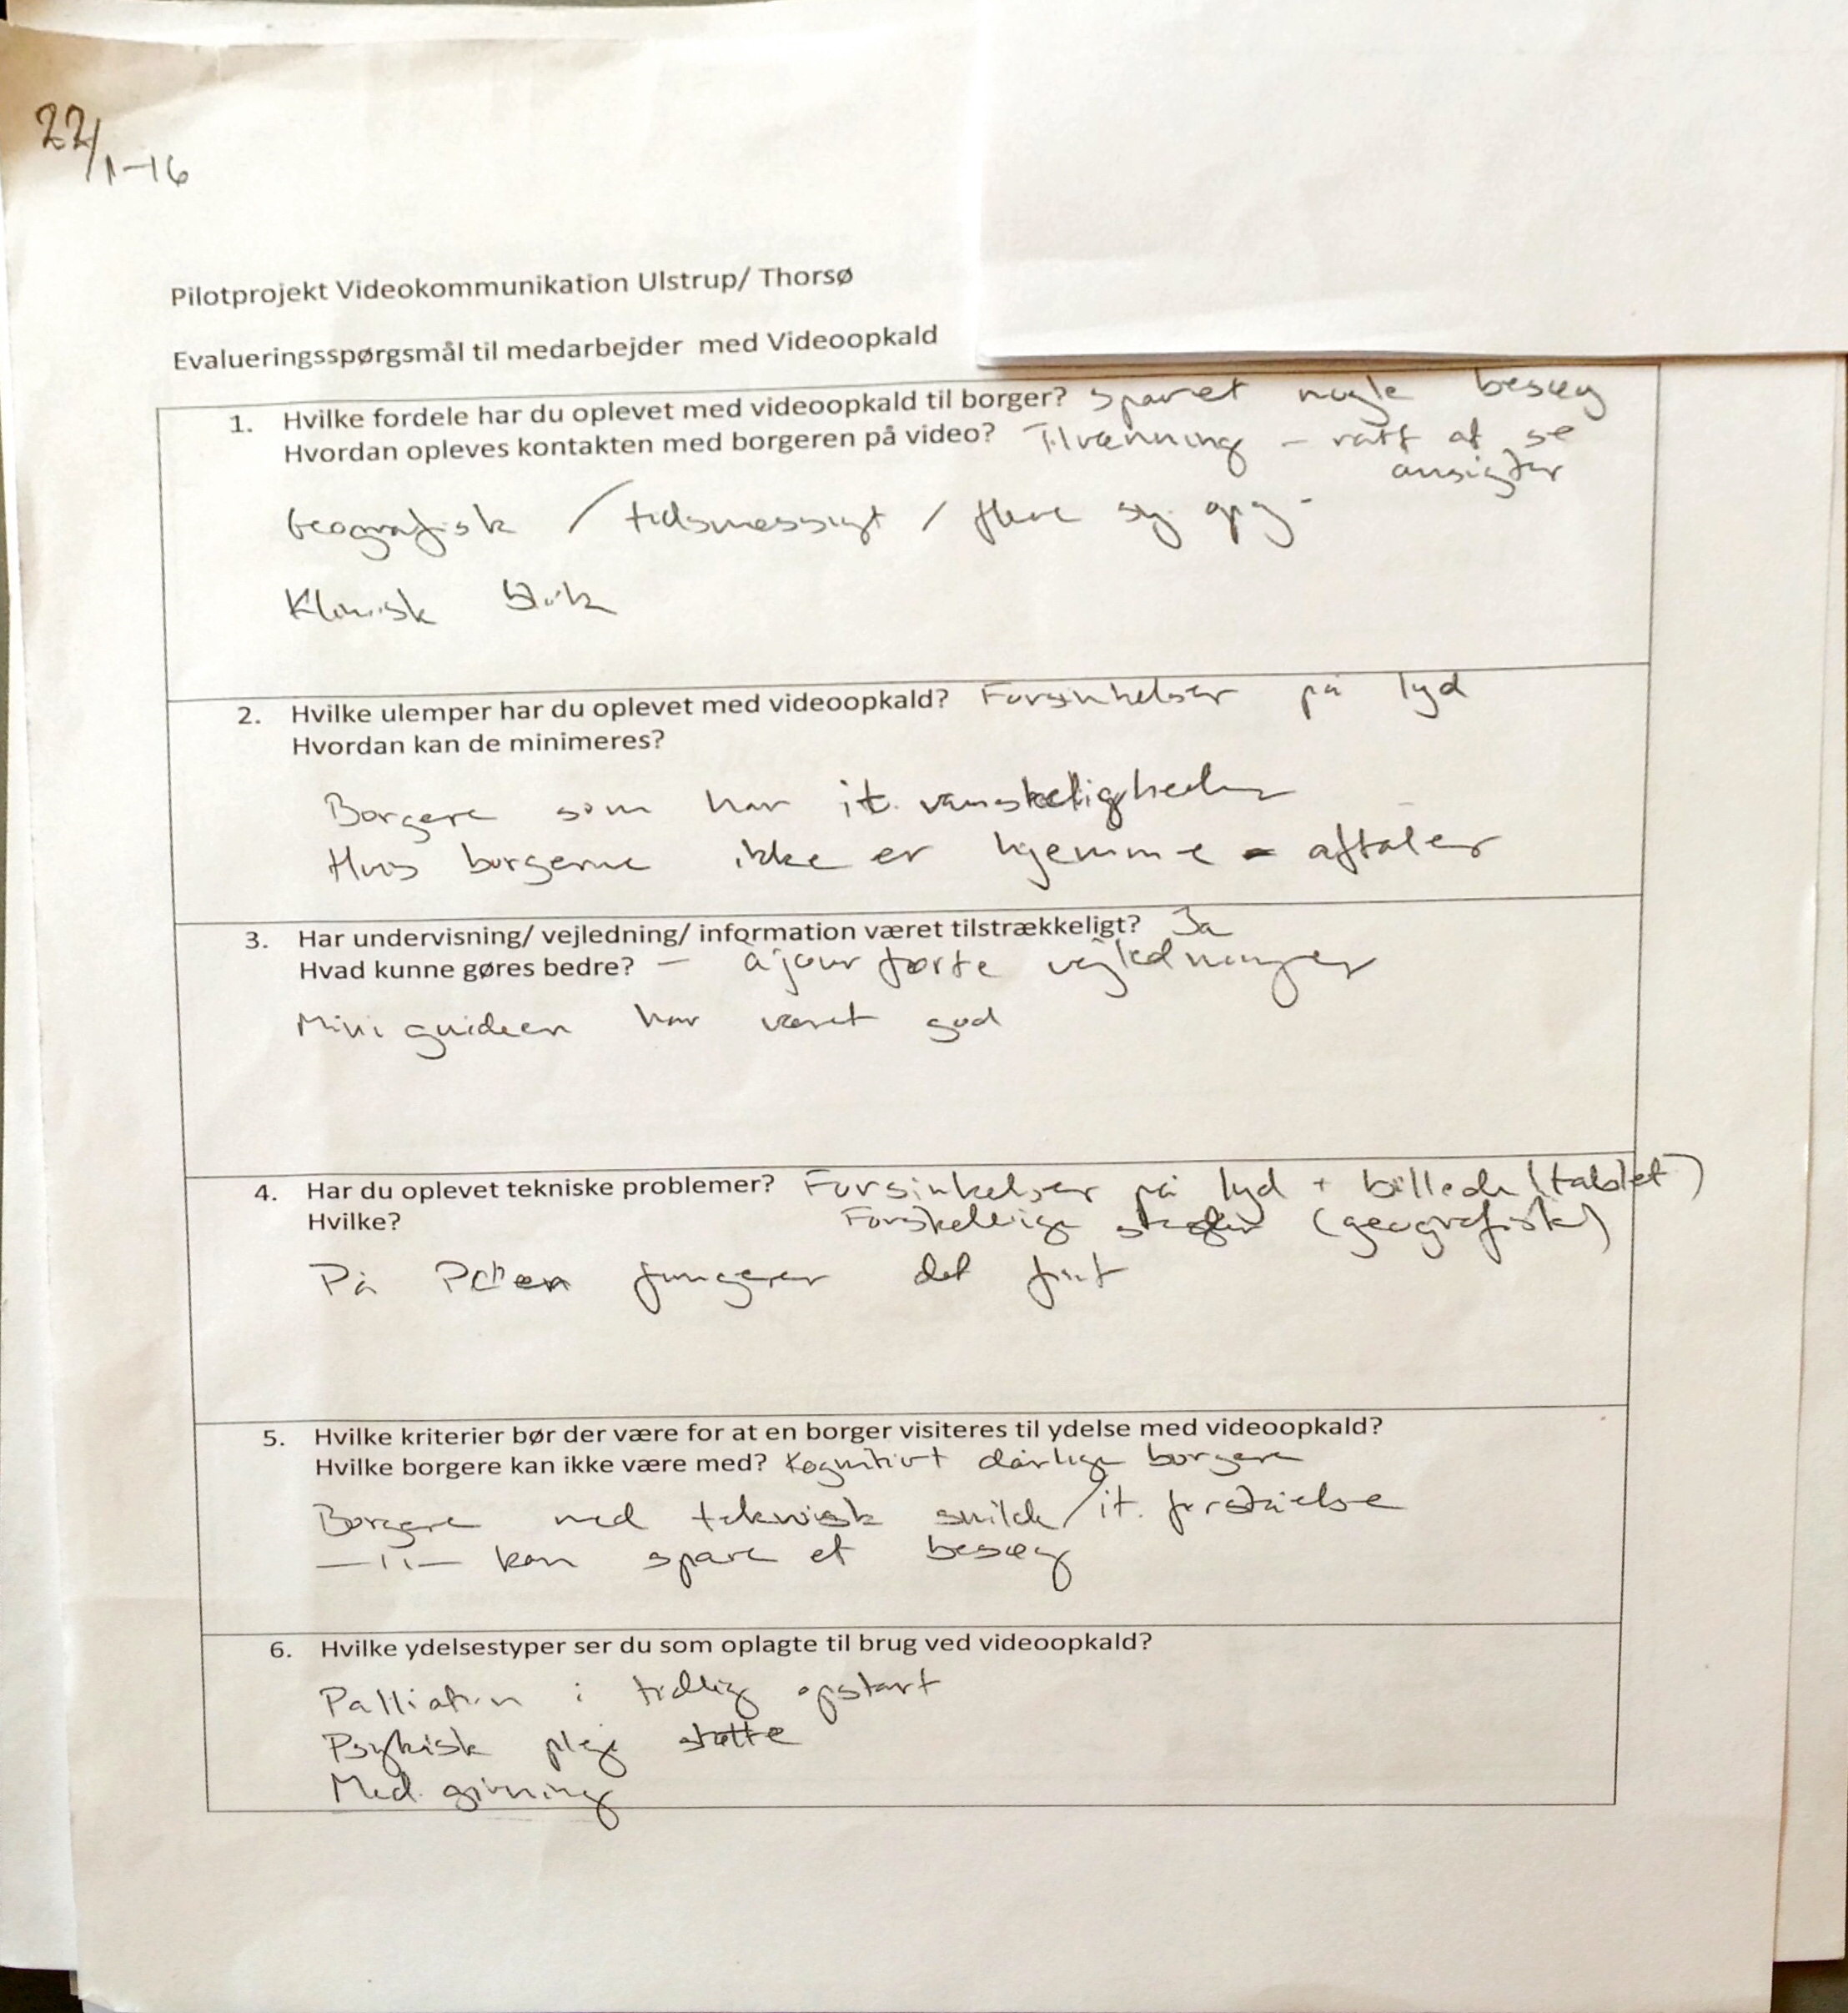 22/1-16
Pilotprojekt Videokommunikation Ulstrup/ Thorsø
Evalueringsspørgsmål til medarbejder med Videoopkald
1. Hvilke fordele har du oplevet med videoopkald til borger? Sparet nogle besøg
Hvordan opleves kontakten med borgeren på video? Tilvænning - rart at se
ansigter
Geografisk / tidsmessigt / flere sy. opg.
Klinisk blik
2. Hvilke ulemper har du oplevet med videoopkald? Forsinkelser på lyd
Hvordan kan de minimeres?
Borgere som har it. vanskeligheder
Hvis borgerne ikke er hjemme - aftaler
3. Har undervisning/ vejledning/ information været tilstrækkeligt? Ja
Hvad kunne gøres bedre? - ajour førte vejledninger
Mini guideen har været god
4. Har du oplevet tekniske problemer? Forsinkelser på lyd + billede (tablet)
Hvilke? Forskellige steder (geografisk)
På PC'en fungerer det fint
5. Hvilke kriterier bør der være for at en borger visiteres til ydelse med videoopkald?
Hvilke borgere kan ikke være med? Kognitivt dårlige borgere
Borgere med teknisk snilde/it. forståelse
-11- kan spare et besøg
6. Hvilke ydelsestyper ser du som oplagte til brug ved videoopkald?
Palliation i tidlig opstart
Psykisk pleje støtte
Med. givning